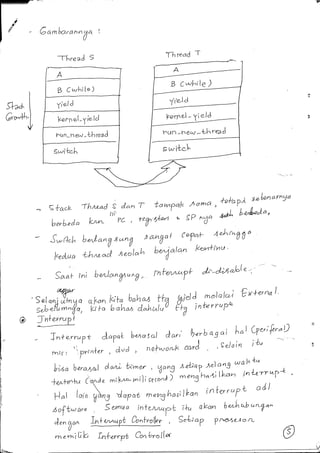 - Gambarannya :
Thread S
Thread T
A
A
B (while)
B (while)
Yield
Yield
kernel-yield
kernel-yield
run-new-thread
run-new-thread
Switch
Switch
Stack
Growth
- Stack Thread S dan T tampak sama, tetapi sebenarnya
berbeda krn PC, register & SP nya berbeda,
- Switch berlangsung sangat cepat sehingga
kedua thread seolah berjalan kontinu.
- Saat ini berlangsung, Interrupt di-disable.
Selanjutnya akan kita bahas ttg yield melalui External.
Sebelumnya, kita bahas dahulu ttg interrupt
Interrupt
- Interrupt dapat berasal dari berbagai hal (periferal)
printer, dvd, network card. Selain itu
bisa berasal dari timer, yang setiap selang waktu
tertentu (orde mikro-mili second) menghasilkan interrupt.
Hal lain yang dapat menghasilkan interrupt adl
software. Semua interrupt itu akan berhubungan
dengan Interrupt Controller. Setiap prosesor
memiliki Interrpt Controller
5